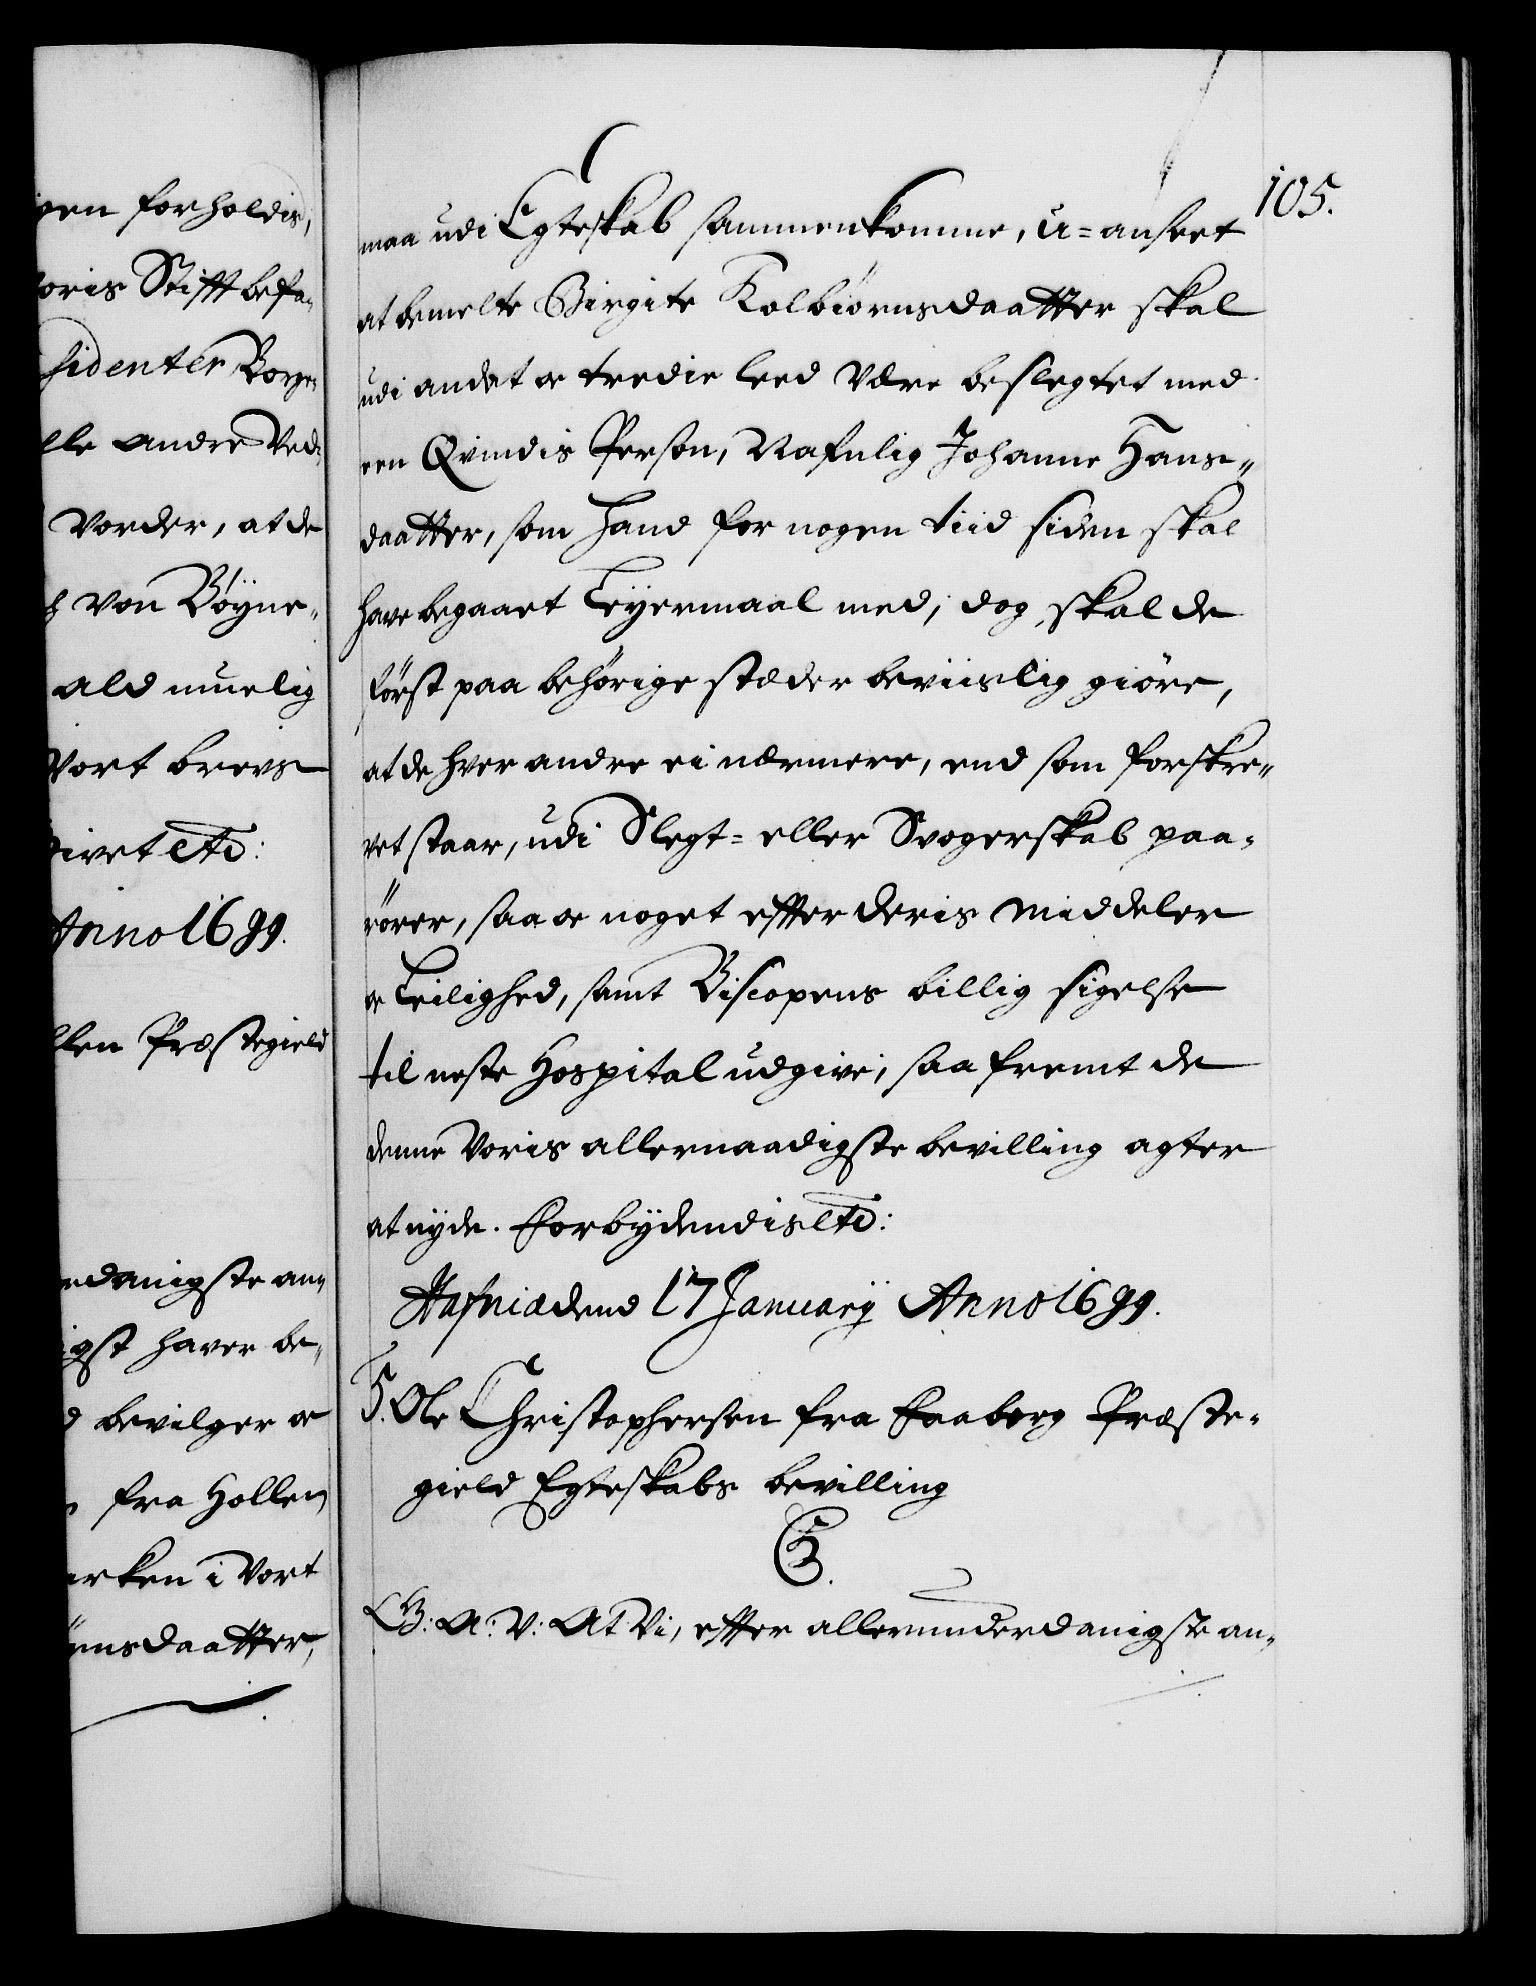 igen forholdis,
oris Stifft befa-
sidenter, Borge-
lle andre Ved-
Vorder, at de
von Böyne-
ald muelig
Vort brevs
givet etc:
Anno 1699.
llen Præstegield
erdanigste an-
igst haver be-
d bevilger oc
fra Hollen
erken i Vort
ørnsdaatter,
105.
maa udi Egteskab sammenkomme, u=anseet
at bemelte Birgite Kolbiørnsdaatter skal
udi andet oc tredie leed Være beslegtet med
een Qvindis Person, Nafnlig Johanne Hans-
daatter, som hand for nogen tiid siden skal
have begaaet Leyermaal med; dog, skal de
først paa behørige stæder beviislig giøre,
at de hver andre ei nærmere, end som forskre-
vet staar, udi Slegt= eller Svogerskab paa-
rører, saa oc noget effter deris middeler
oc Leilighed, samt Biscopens billig sigelse
til neste Hospital udgive, saa fremt de
denne Voris allernaadigste bevilling agter
at nyde. Forbydendis etc:
Hafniæ dend 17 January Anno 1699.
Ole Christophersen fra Faaberg Præste-
gield Egteskabs bevilling
C5.
G: A: V: At Vi, effter allerunderdanigste an-